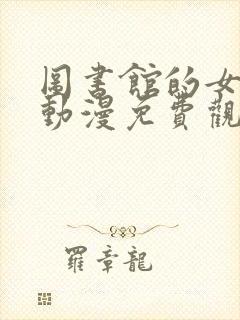 圖書館的女
動漫免費觀
羅章龍